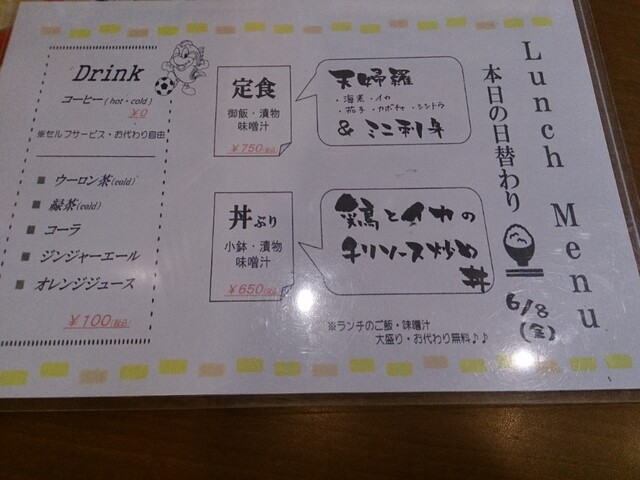 Lunch Menu
本日の日替わり
6/8
(金)
定食
御飯・漬物
味噌汁
￥750(税込)
天婦羅
・海老・イカ
・茄子・カボチャ・シシトウ
& ミニ刺身
丼ぶり
小鉢・漬物
味噌汁
￥650(税込)
鶏とイカの
チリソース炒め
丼
※ランチのご飯・味噌汁
大盛り・お代わり無料♪♪
Drink
コーヒー(hot・cold)
￥0
※セルフサービス・お代わり自由
■ ウーロン茶(cold)
■ 緑茶(cold)
■ コーラ
■ ジンジャーエール
■ オレンジジュース
￥100(税込)